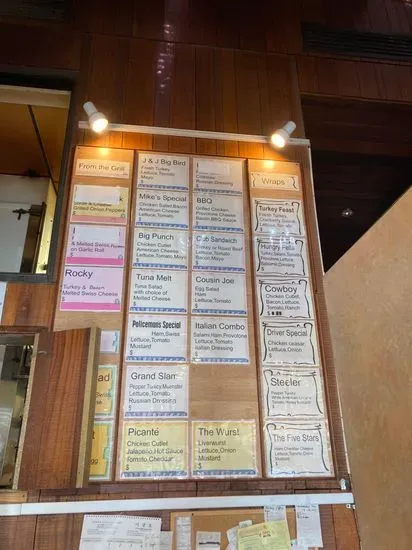 From the Grill
Grilled Onion Peppers
& Melted Swiss
on Garlic Roll
$
Rocky
Turkey & Bacon
Melted Swiss Cheese
$
J & J Big Bird
Fresh Turkey
Lettuce, Tomato
Mayo
$
Mike's Special
Chicken Salad, Bacon
American Cheese
Lettuce, Tomato
Big Punch
Chicken Cutlet
Lettuce, Tomato, Mayo
Tuna Melt
Tuna Salad
with choice of
Melted Cheese
Policemans Special
Ham, Swiss
Lettuce, Tomato
Mustard
Grand Slam
Pepper Turkey, Muenster
Lettuce, Tomato
Russian Dressing
Picanté
Chicken Cutlet
Jalapeño, Hot Sauce
Tomato, Cheddar
Coleslaw
Russian Dressing
BBQ
Grilled Chicken
Provolone Cheese
Bacon, BBQ Sauce
Club Sandwich
Turkey or Roast Beef
Lettuce, Tomato
Bacon, Mayo
Cousin Joe
Egg Salad
Ham
Lettuce, Tomato
Italian Combo
Salami, Ham, Provolone
Lettuce, Tomato
Italian Dressing
The Wurst
Liverwurst
Lettuce, Onion
Mustard
$
Wraps
Turkey Feast
Fresh Turkey
Lettuce, Tomato
Hungry Fella
Cowboy
Chicken Cutlet,
Lettuce, Tomato,
Ranch
Driver Special
Chicken ceasar
Lettuce, Onion
Steeler
Pepper Turkey
White American Cheese
The Five Stars
Ham, Cheddar Cheese
Lettuce, Tomato, Onion
Mustard
ad
gg